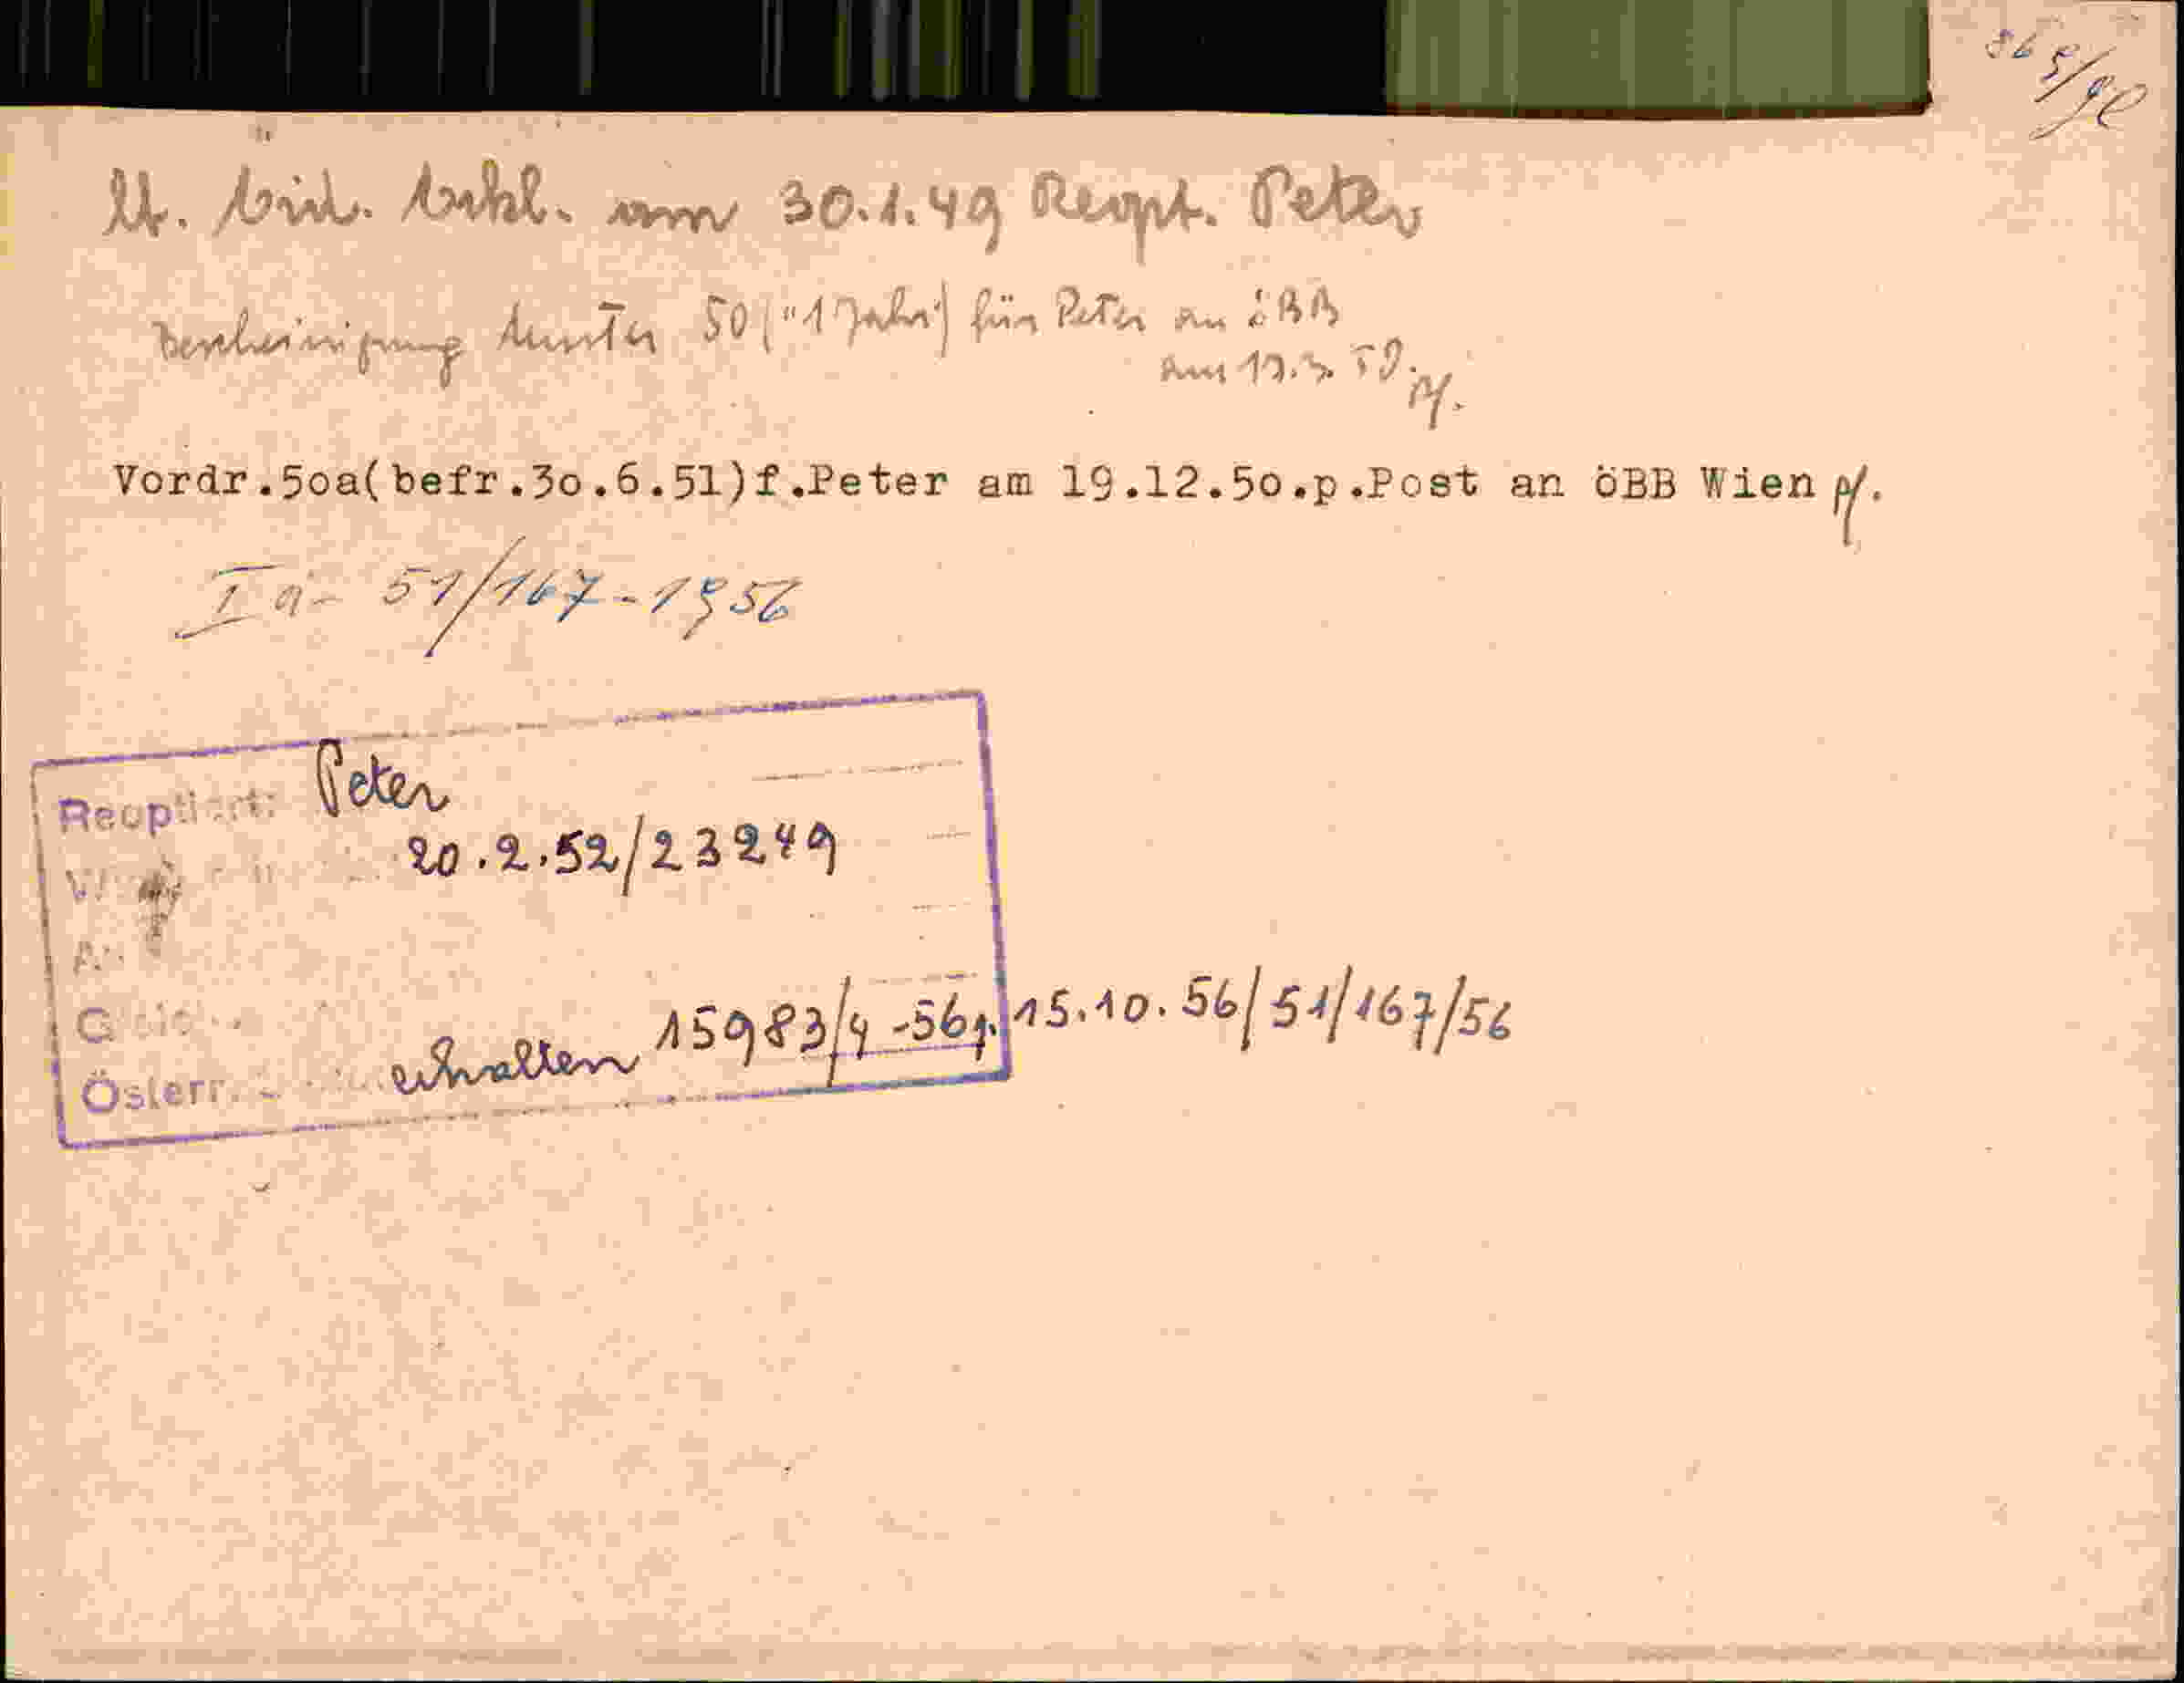 lt. eid. Erkl. am 30.1.49 Reopt. Peter
Bescheinigung Muster 50 ("1 Jahr") für Peter an öBB
am
Vordr.5oa(befr.3o.6.51)f.Peter am 19.12.5o.p.Post an öBB Wien
I a- 51/167-1956
Reoptiert: Peter
20.2.52/23249
Österr.
erhalten 15983/4-56 15.10.56/51/167/56